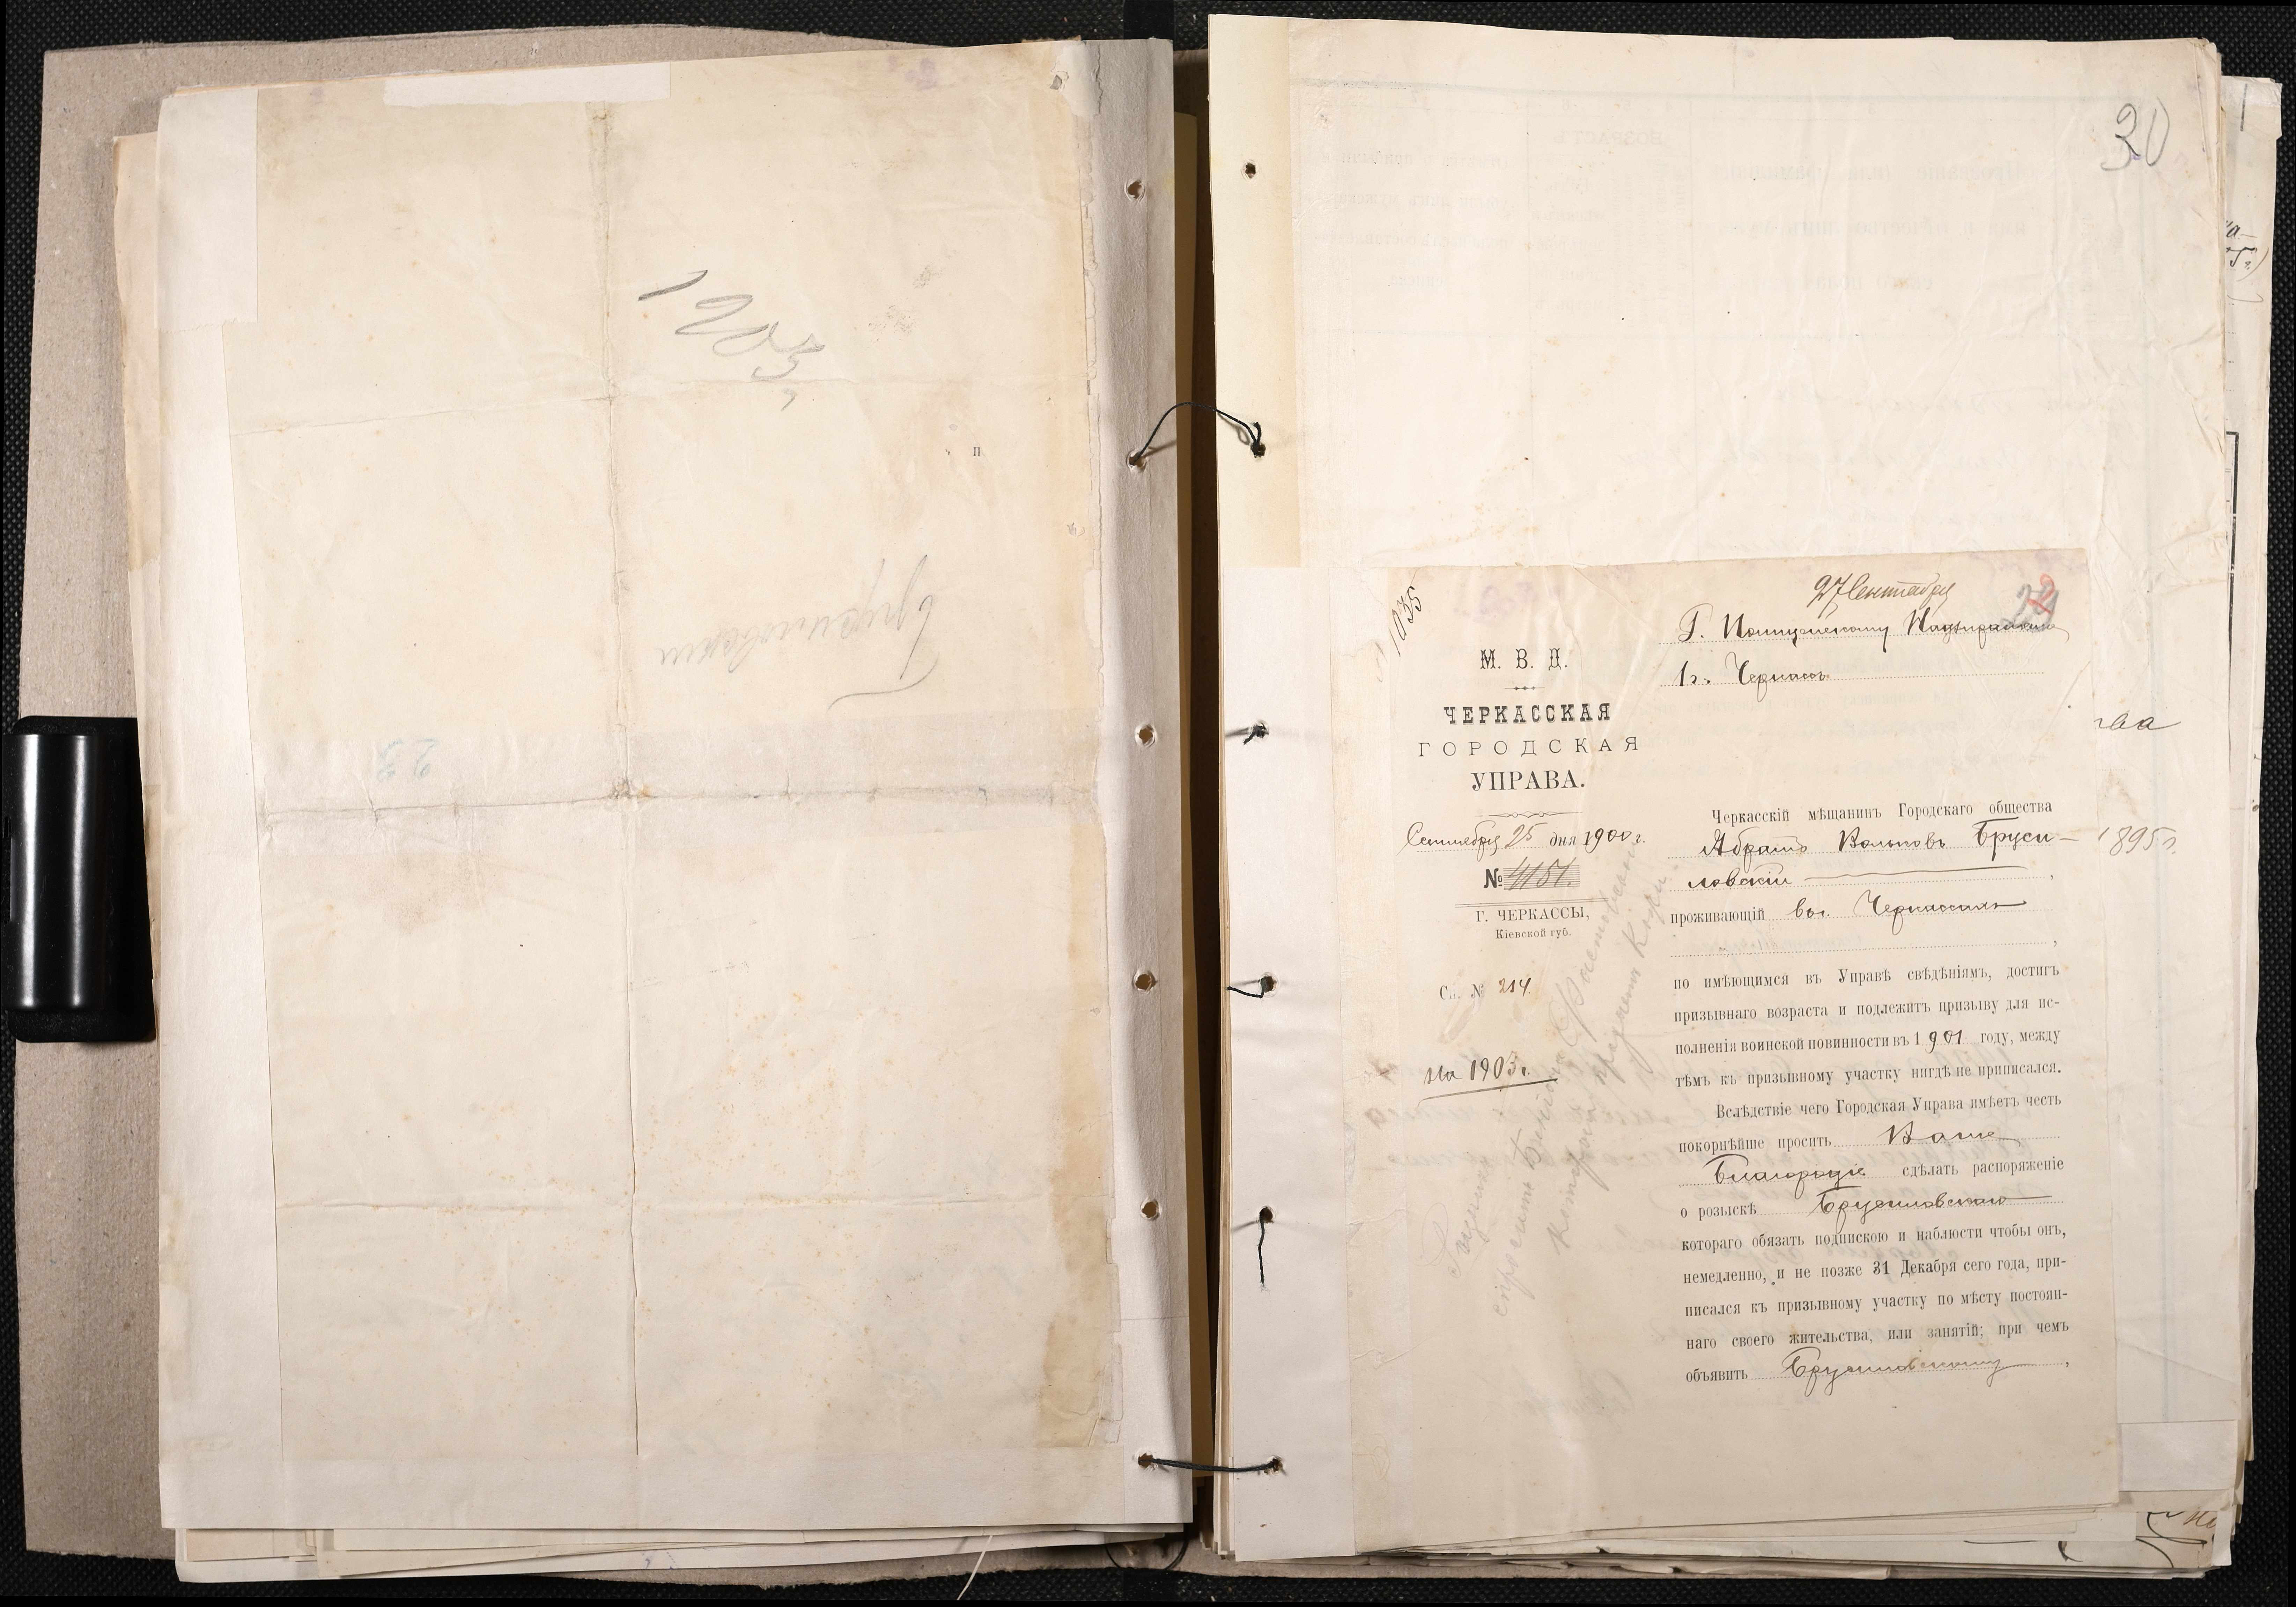 1203
Брусиловскій
23
30
1035
27 Сентября
Г. Полицейскому Надзирателю
1 г. Черкассъ
М. В. Д.
ЧЕРКАССКАЯ
ГОРОДСКАЯ
УПРАВА.
Сентября 25 дня 1900 г.
№ 4151.
Г. ЧЕРКАССЫ,
Кіевской губ.
Сп. № 214.
На 1903 г.
Черкасскій мѣщанинъ Городскаго общества
Абрамъ Вольковъ Бруси-
ловскій
проживающій въ г. Черкассахъ
по имѣющимся въ Управѣ свѣдѣніямъ, достигъ
призывнаго возраста и подлежитъ призыву для ис-
полненія воинской повинности въ 1901 году, между
тѣмъ къ призывному участку нигдѣ не приписался.
Вслѣдствіе чего Городская Управа имѣетъ честь
покорнѣйше просить Ваше
Благородіе сдѣлать распоряженіе
о розыскѣ Брусиловскаго
котораго обязать подпискою и наблюсти чтобы онъ,
немедленно, и не позже 31 Декабря сего года, при-
писался къ призывному участку по мѣсту постоян-
наго своего жительства, или занятій; при чемъ
объявить Брусиловскому,
1895 г.